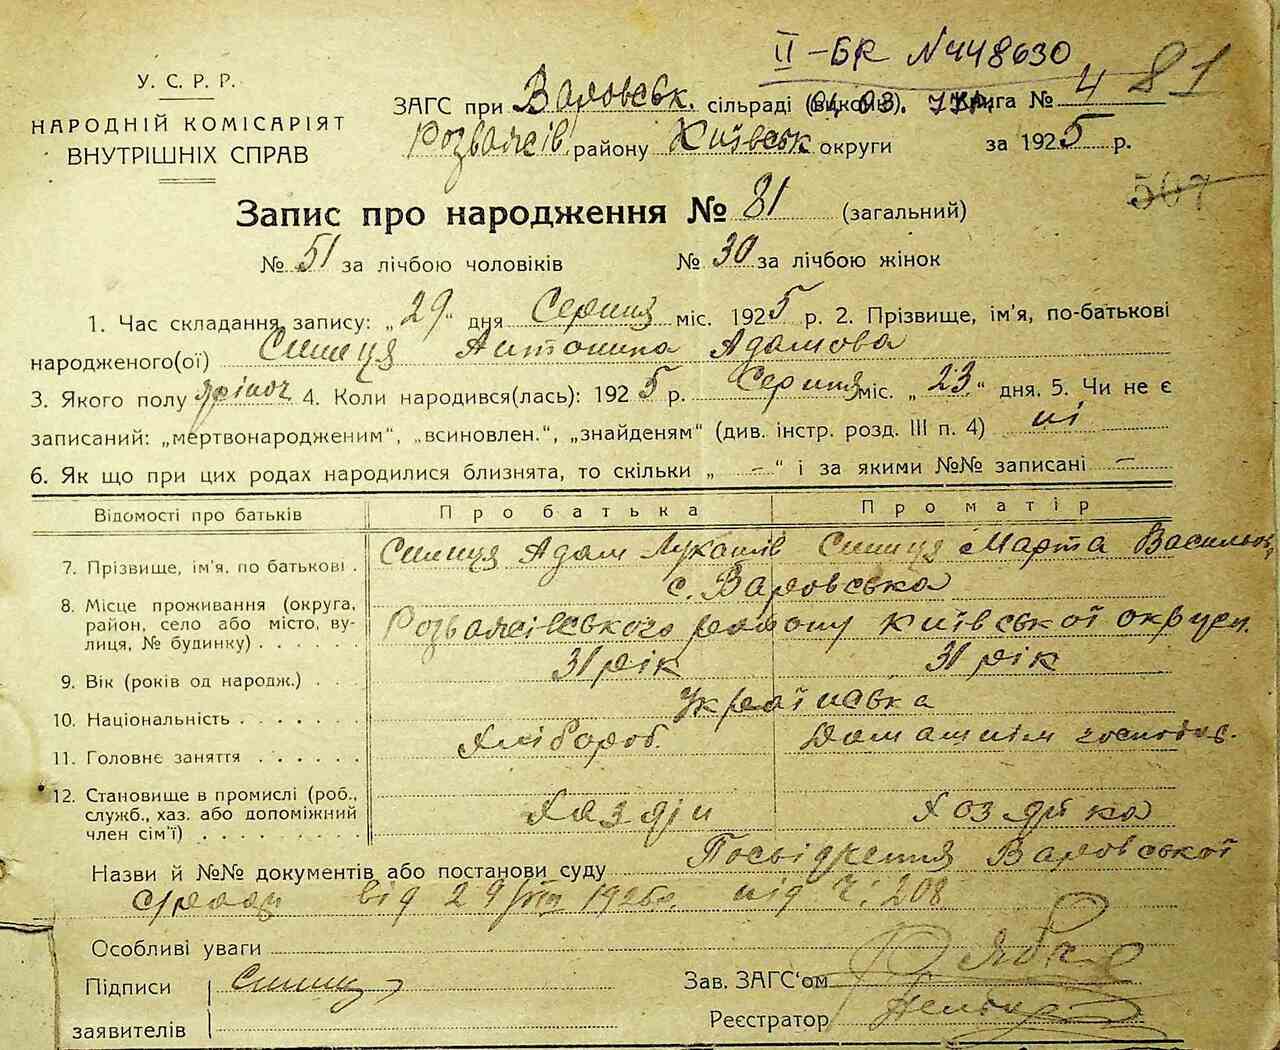 ІІ-БК №448630
У. С. Р. Р.
НАРОДНІЙ КОМІСАРІЯТ
ВНУТРІШНІХ СПРАВ
ЗАГС при Варовськ. сільраді Книга № 4 81
Розважів. району Київськ округи за 1925 р.
507
Запис про народження № 81 (загальний)
№ 51 за лічбою чоловіків № 30 за лічбою жінок
1. Час складання запису: „29“ дня Серпня міс. 1925 р. 2. Прізвище, ім'я, по-батькові
народженого(ої) Синиця Антонина Адамова
3. Якого полу жіноч 4. Коли народився(лась): 1925 р. Серпня міс. „23“ дня. 5. Чи не є
записаний: „мертвонародженим“, „всиновлен.“, „знайденям“ (див. інстр. розд. III п. 4) ні
6. Як що при цих родах народилися близнята, то скільки „ – “ і за якими №№ записані –
Відомості про батьків Про батька Про матір
7. Прізвище, ім'я, по батькові . Синиця Адам Лукашів Синиця Марта Васильов
с. Варовська
8. Місце проживання (округа,
район, село або місто, ву-
лиця, № будинку) . . . . . . Розважівського району Київської округи.
9. Вік (років од народж.) . . . 31 рік 31 рік
10. Національність . . . . . . . Українська
11. Головне заняття . . . . . . Хлібороб. Домашнім господар.
12. Становище в промислі (роб.,
служб., хаз. або допоміжний
член сім'ї) . . . . . . . . . Хаздяїн Хоздяйка
Назви й №№ документів або постанови суду Посвідчення Варовської
с/ради від 29/VIII 192 р. під ч: 208
Особливі уваги
Підписи Синиця
заявителів
Зав. ЗАГС‘ом
Реєстратор